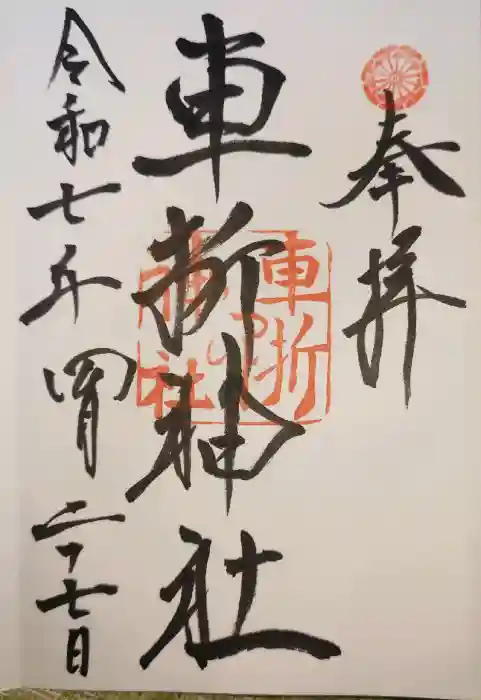 奉拝
車折神社
車折神社
令和七年四月二十七日